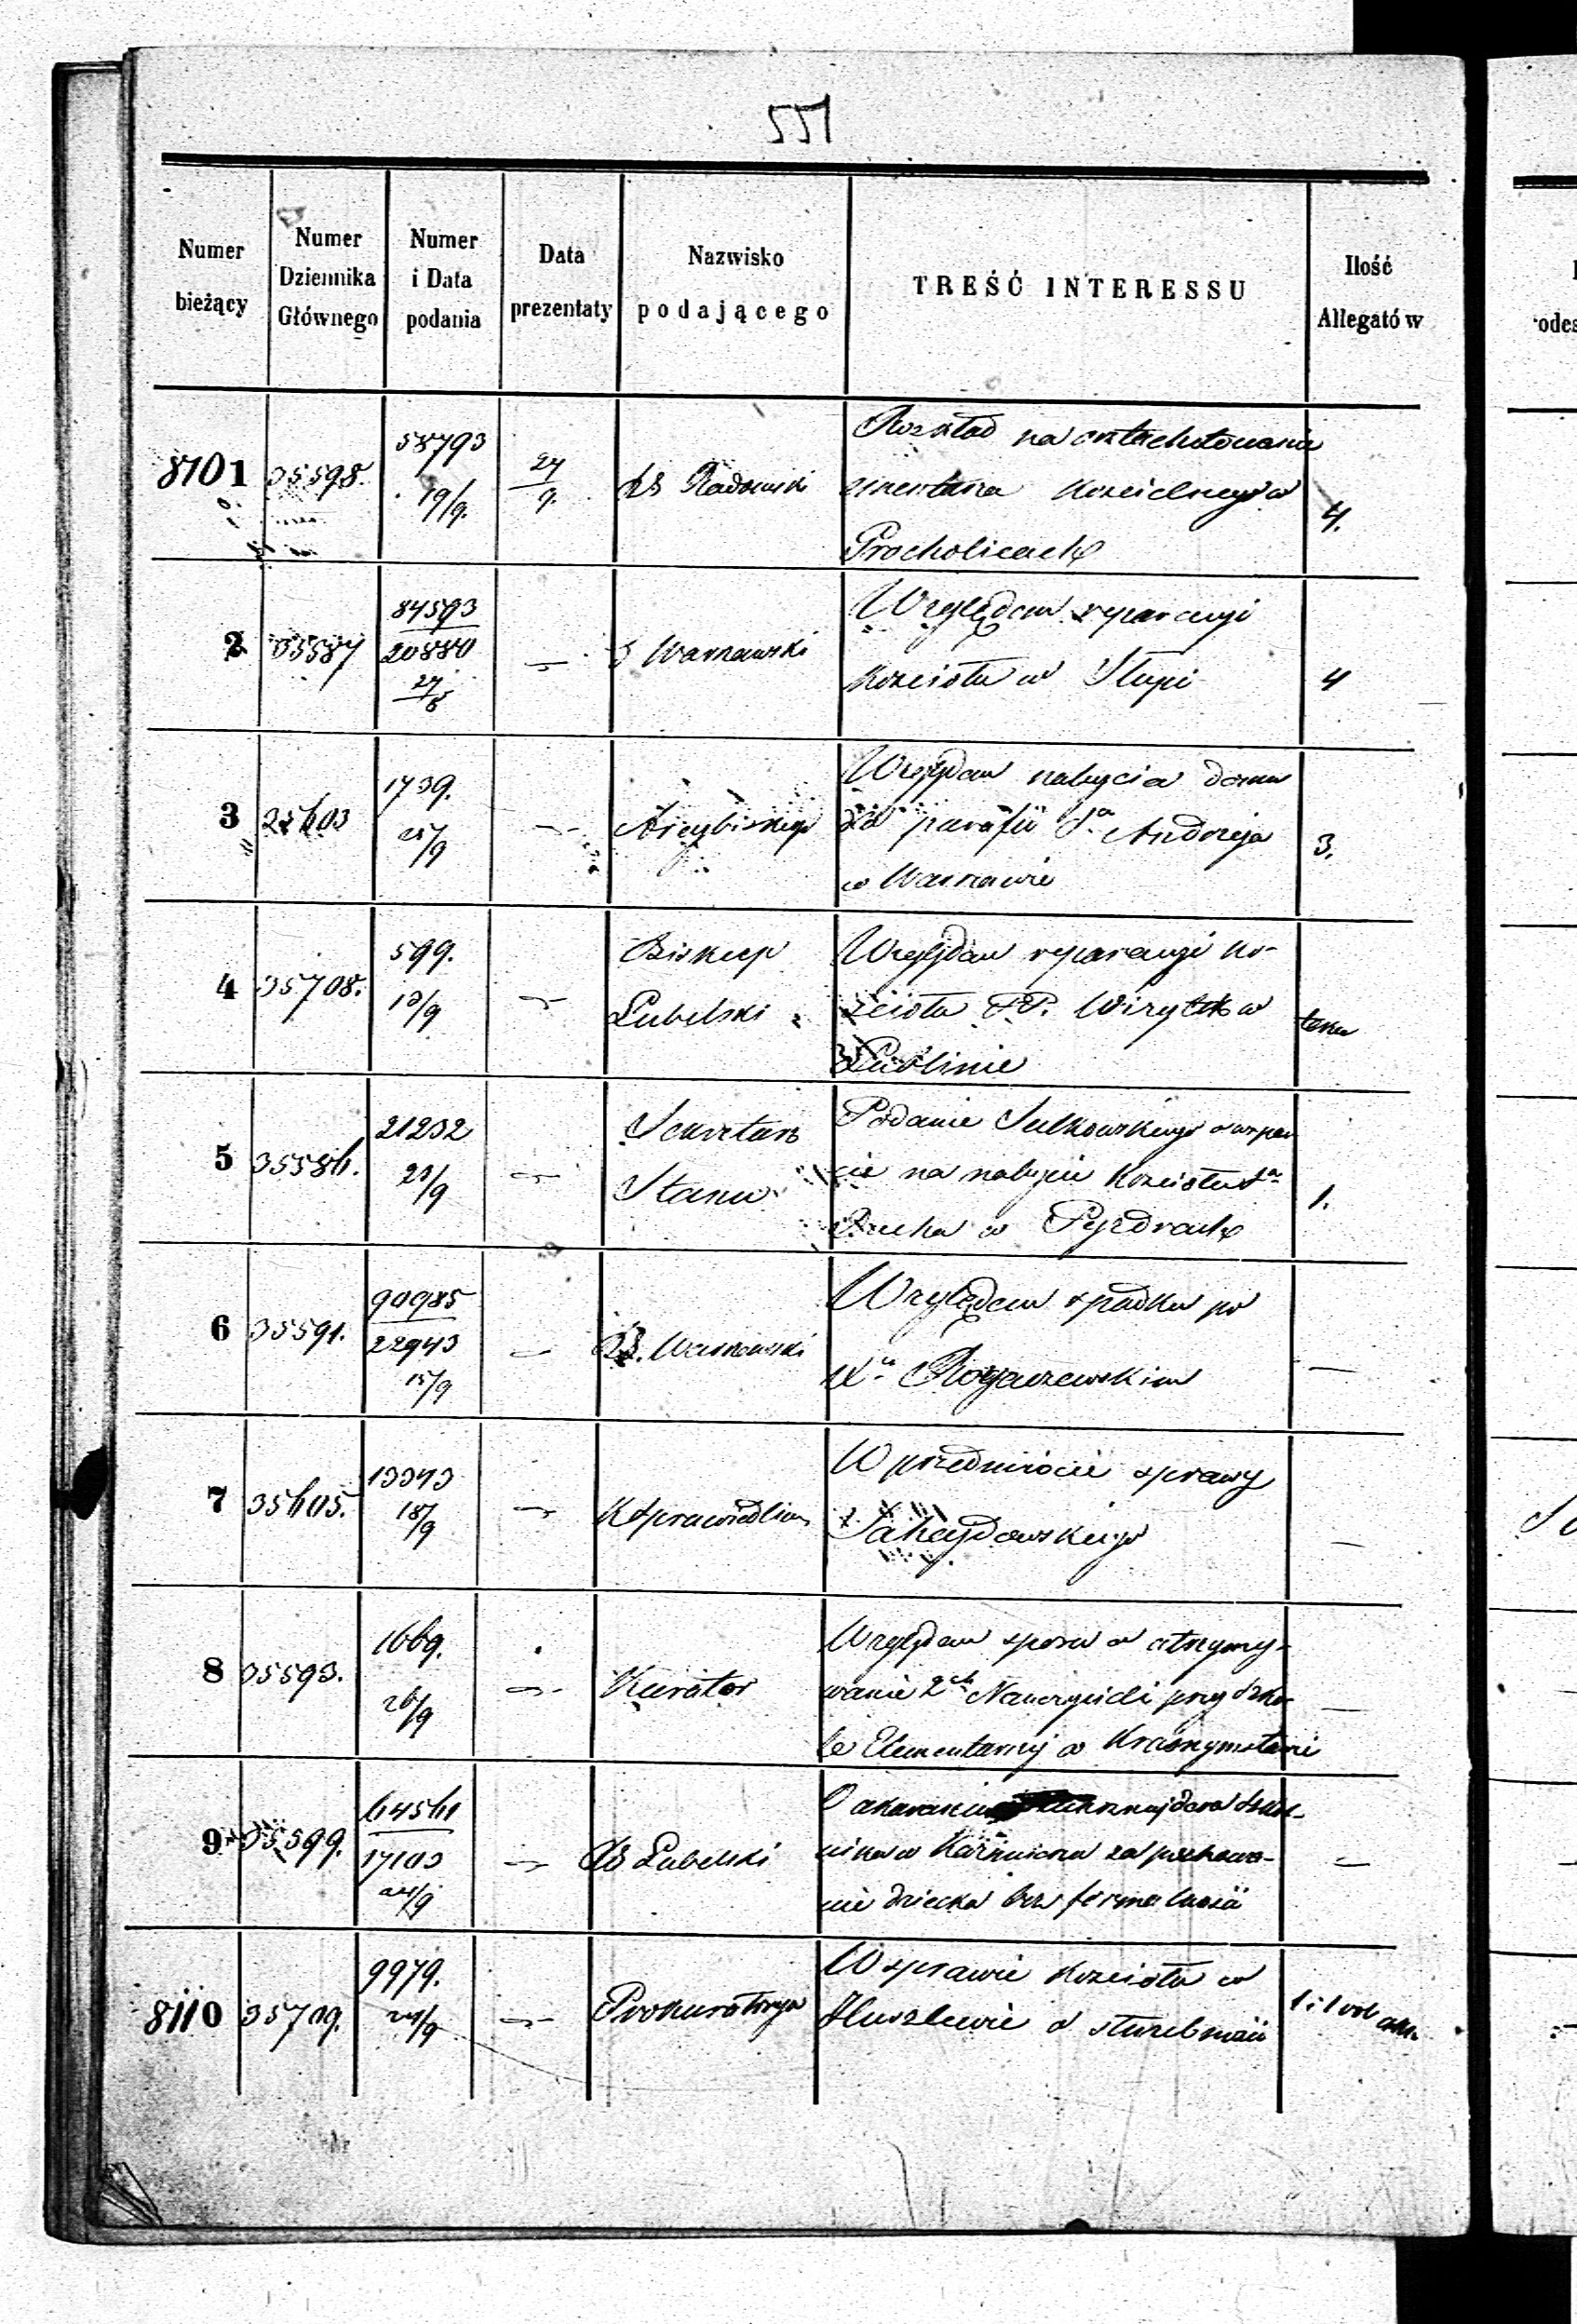 551
Numer bieżący
Numer Dziennika Głównego
Numer i Data podania
Data prezentaty
Nazwisko podającego
TREŚĆ INTERESSU
Ilość Allegatów
8101 35598. 58793 19/9. 27/9. Radomski
Rozkład na
cmentarza kościelnego w
Procholicach
4.
2 35587 84593 20880 27/8 — Warszawski
Względem reparacyi
kościoła w Słupi
4
3 1739. 25/9 — Arcybiskup
Względem nabycia domu
dla parafii Sgo Andrzeja
w Warszawie
3.
4 35708. 599. 13/9 — Biskup
Lubelski
Względem reparacyi ko-
ścioła PP. Wizytek w
Lublinie
5 35586. 21232 23/9 — Sekretarz
Stanu
Podanie Sulkowskiego
cie na nabycie kościoła Sgo
Ducha w Pyzdrach
1.
6 35591. 90985 22943 15/9 — Warszawski
Względem spadku po
Xu Rogaszewskim
—
7 35605. 13343 18/9 — K Sprawiedliwo
W przedmiocie sprawy
—
8 35593. 1669. 26/9 — Kurator
Względem sporu o utrzymy-
wanie 2ch Nauczycieli przy Szko-
le Elementarnej w Krasnymstawie
—
9 35599. 64561 17103 — Lubelski
O ukaranie
za pochowa-
nie dziecka bez formalności
—
8110 35709. 9979. 24/9 — Prokuratorya
W sprawie kościoła w
Huszlewie o służebności
1 i 1 vol akt.